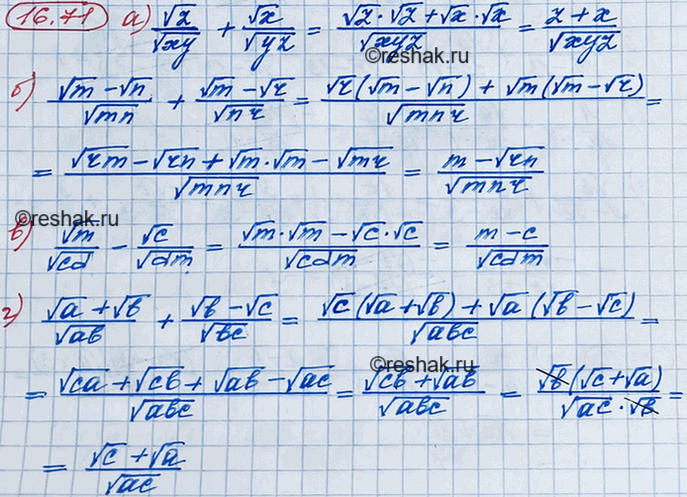 16.71 а) √z/√xy + √x/√yz = (√z·√z+√x·√x)/√xyz = (z+x)/√xyz
©reshak.ru
б) (√m-√n)/√mn + (√m-√r)/√nr = (√r(√m-√n)+√m(√m-√r))/√mnr =
= (√rm-√rn+√m·√m-√mr)/√mnr = (m-√rn)/√mnr
©reshak.ru
в) √m/√cd - √c/√dm = (√m·√m-√c·√c)/√cdm = (m-c)/√cdm
г) (√a+√b)/√ab + (√b-√c)/√bc = (√c(√a+√b)+√a(√b-√c))/√abc =
©reshak.ru
= (√ca+√cb+√ab-√ac)/√abc = (√cb+√ab)/√abc = √b(√c+√a)/(√ac·√b) =
= (√c+√a)/√ac